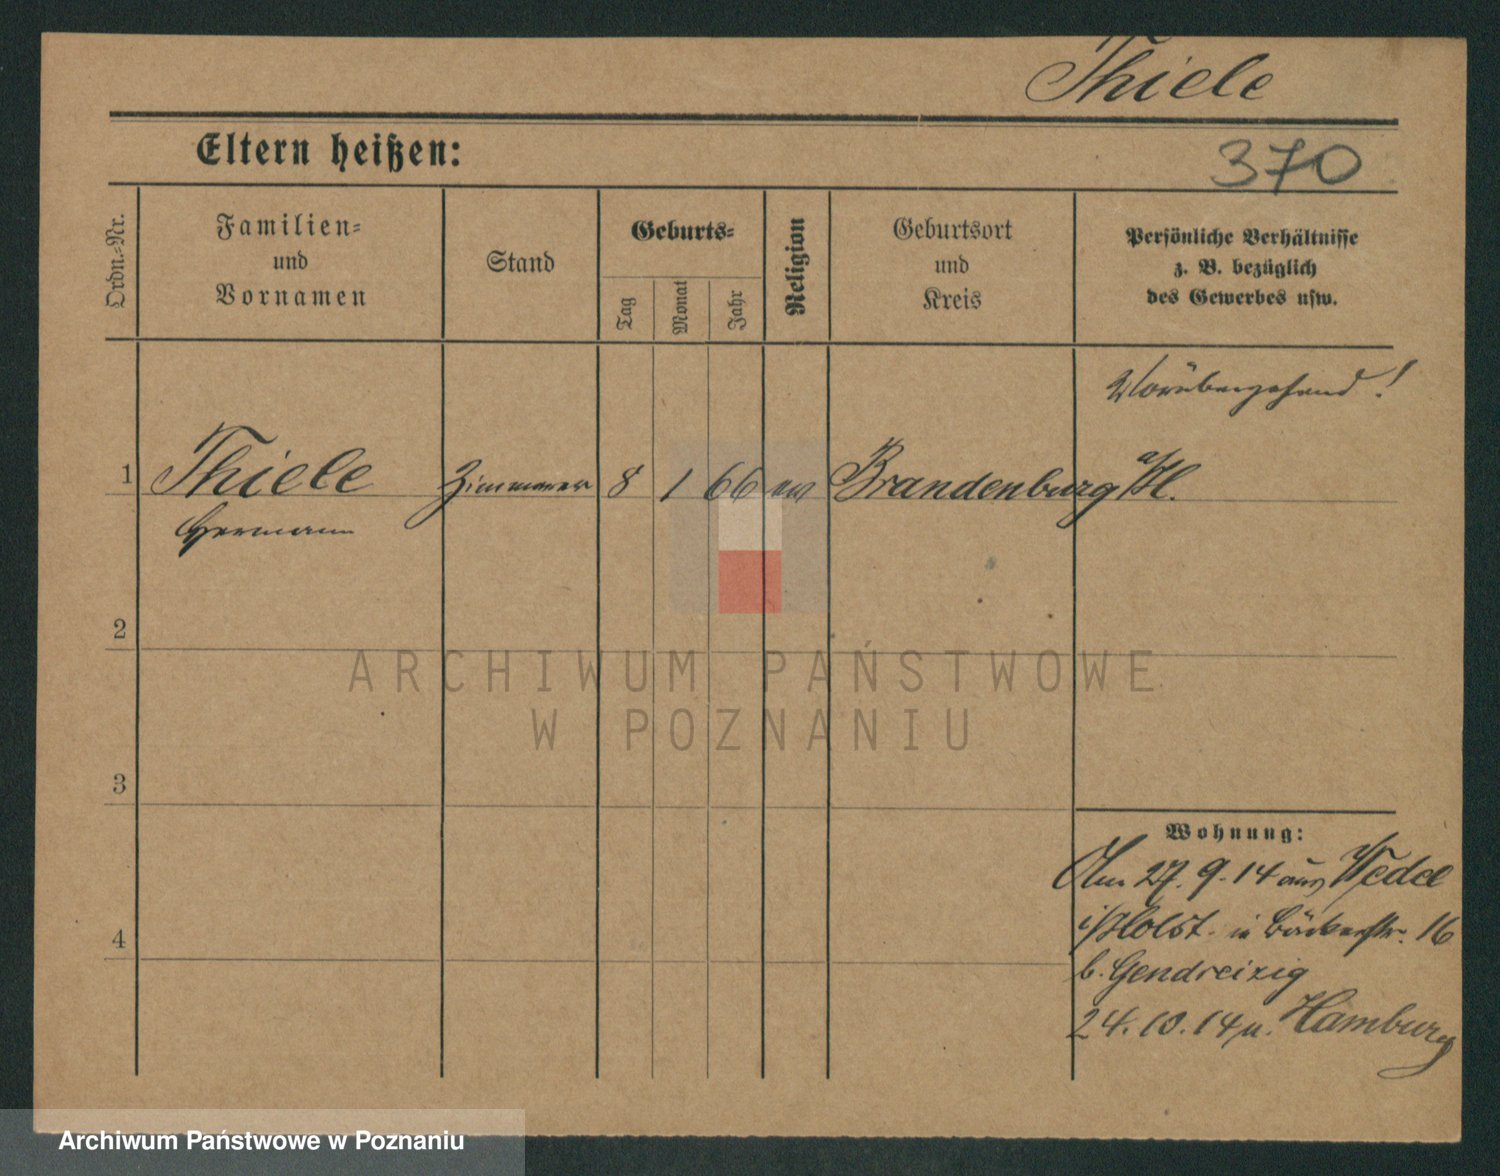 Thiele
Eltern heißen:
370
Ordn.-Nr.
Familien-
und
Vornamen
Stand
Geburts-
Tag
Monat
Jahr
Religion
Geburtsort
und
Kreis
Persönliche Verhältnisse
z. B. bezüglich
des Gewerbes usw.
Vorübergehend!
1 Thiele Zimmerer 8 1 66 ev Brandenburg a/H.
Hermann
2
ARCHIWUM PAŃSTWOWE
W POZNANIU
3
Wohnung:
Am 27. 9. 14 aus Wedel
i/Holst. in Bäckerstr. 16
4
b. Gendreizig
24. 10. 14 n. Hamburg
Archiwum Państwowe w Poznaniu